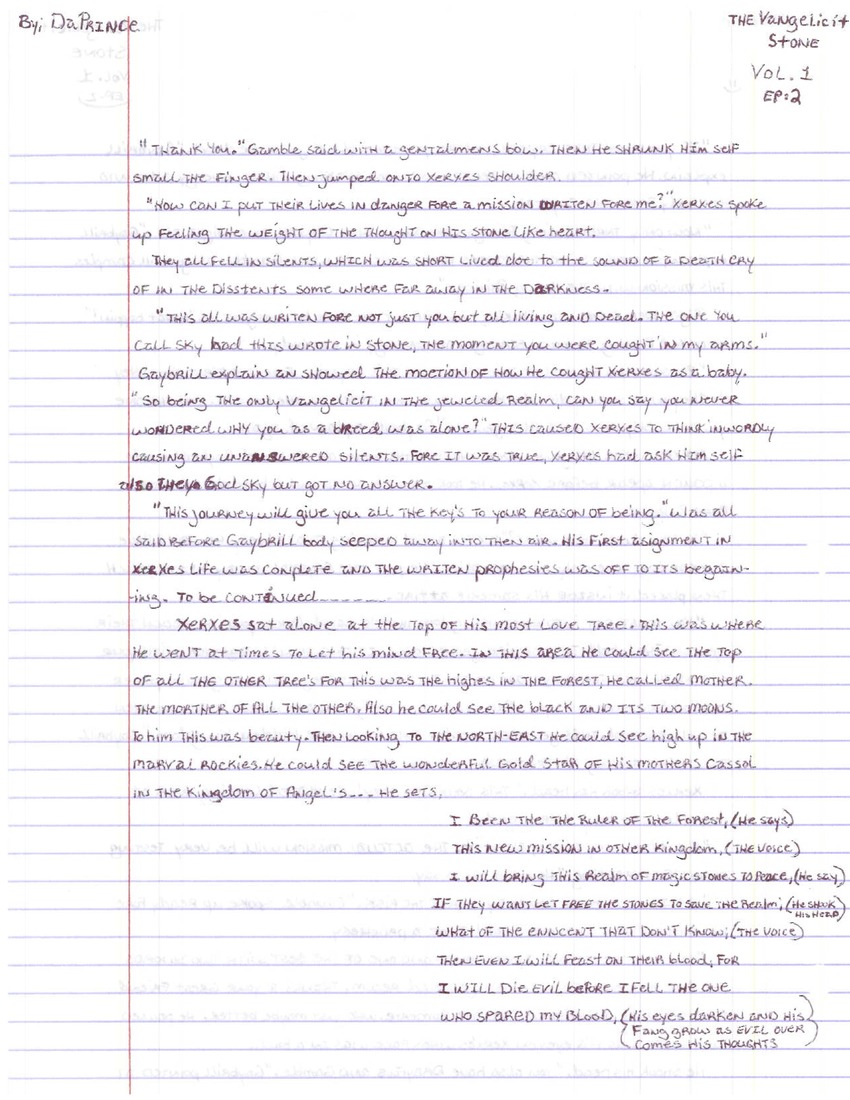 By; DaPRINCE
THE Vangelicit
STONE
VOL. 1
EP:2
"THANK YOU." Gamble said with a gentalmens bow. THEN HE SHRUNK HIM self
small THE FINGER. THEN jumped ONTO XERXES SHOULDER.
"HOW CAN I PUT THEIR LIVES IN danger FORE a mission WRITEN FORE me?" XERXES spoke
up FEELING THE WEIGHT OF THE THOUGHT ON HIS STONE LIKE HEART.
THEY ALL FELL IN SILENTS, WHICH was SHORT LIVED doe to the SOUND OF a DEATH CRY
OF IN THE DISSTENTS SOME WHERE FAR away IN THE DARKNESS.
"THIS all was WRITEN FORE NOT just you but all living AND DEAD. THE ONE YOU
CALL SKY had THIS WROTE IN STONE, THE MOMENT you WERE COUGHT IN my arms."
GAYBRILL EXPLAIN AN SHOWED THE MOETION OF HOW HE COUGHT XERXES as a baby.
"SO being THE ONLY VANGELICIT IN THE JEWELED REALM, CAN YOU SAY YOU NEVER
WONDERED WHY YOU as a breed was alone?" THIS CAUSED XERXES TO THINK INWORDLY
causing an UNANSWERED SILENTS. FORE IT was TRUE, XERXES had ask HIM self
also THEYO God SKY but GOT NO ANSWER.
"THIS JOURNEY will give you all THE KEY'S TO YOUR REASON OF being." Was all
said BEFORE GAYBRILL body SEEPED away INTO THEN aIR. HIS FIRST asignment IN
XERXES LIFE was CONPLETE AND THE WRITEN prophesies was OFF TO ITS begain-
-ing. TO be CONTINUED---------
XERXES sat alone at the TOP OF HIS MOST LOVE TREE. THIS was WHERE
HE WENT at TIMES TO LET his mind FREE. IN THIS area HE COULD SEE THE TOP
OF all THE OTHER TREE'S FOR THIS was THE highes IN THE FOREST, HE CALLED MOTHER.
THE MORTHER OF ALL THE OTHER. Also he could SEE THE black AND ITS TWO MOONS.
To him THIS was beauty. THEN LOOKING TO THE NORTH-EAST HE COULD SEE high up IN THE
MARVAL ROCKIES. HE COULD SEE THE WONDERFUL GOLD STAR OF HIS MOTHERS CASSOL
IN THE KINGDOM OF ANGEL'S... HE SETS,
I BEEN THE THE RULER OF THE FOREST, (HE says)
THIS NEW mission IN OTHER KINGDOM, (THE VOICE)
I will bRING THIS REALM OF magic STONES TO PEACE, (HE say)
IF THEY WANT LET FREE THE STONES TO SAVE THE REALM; (HE SHOOK
HIS HEAD)
WHAT OF THE ENNCENT THAT DON'T KNOW; (THE VOICE)
THEN EVEN I WILL FEAST ON THEIR blood, FOR
I WILL DIE EVIL bEFORE I FELL THE ONE
WHO SPARED MY BLOOD, (HIS eyes darken AND HIS
FANG GROW AS EVIL OVER
COMES HIS THOUGHTS)